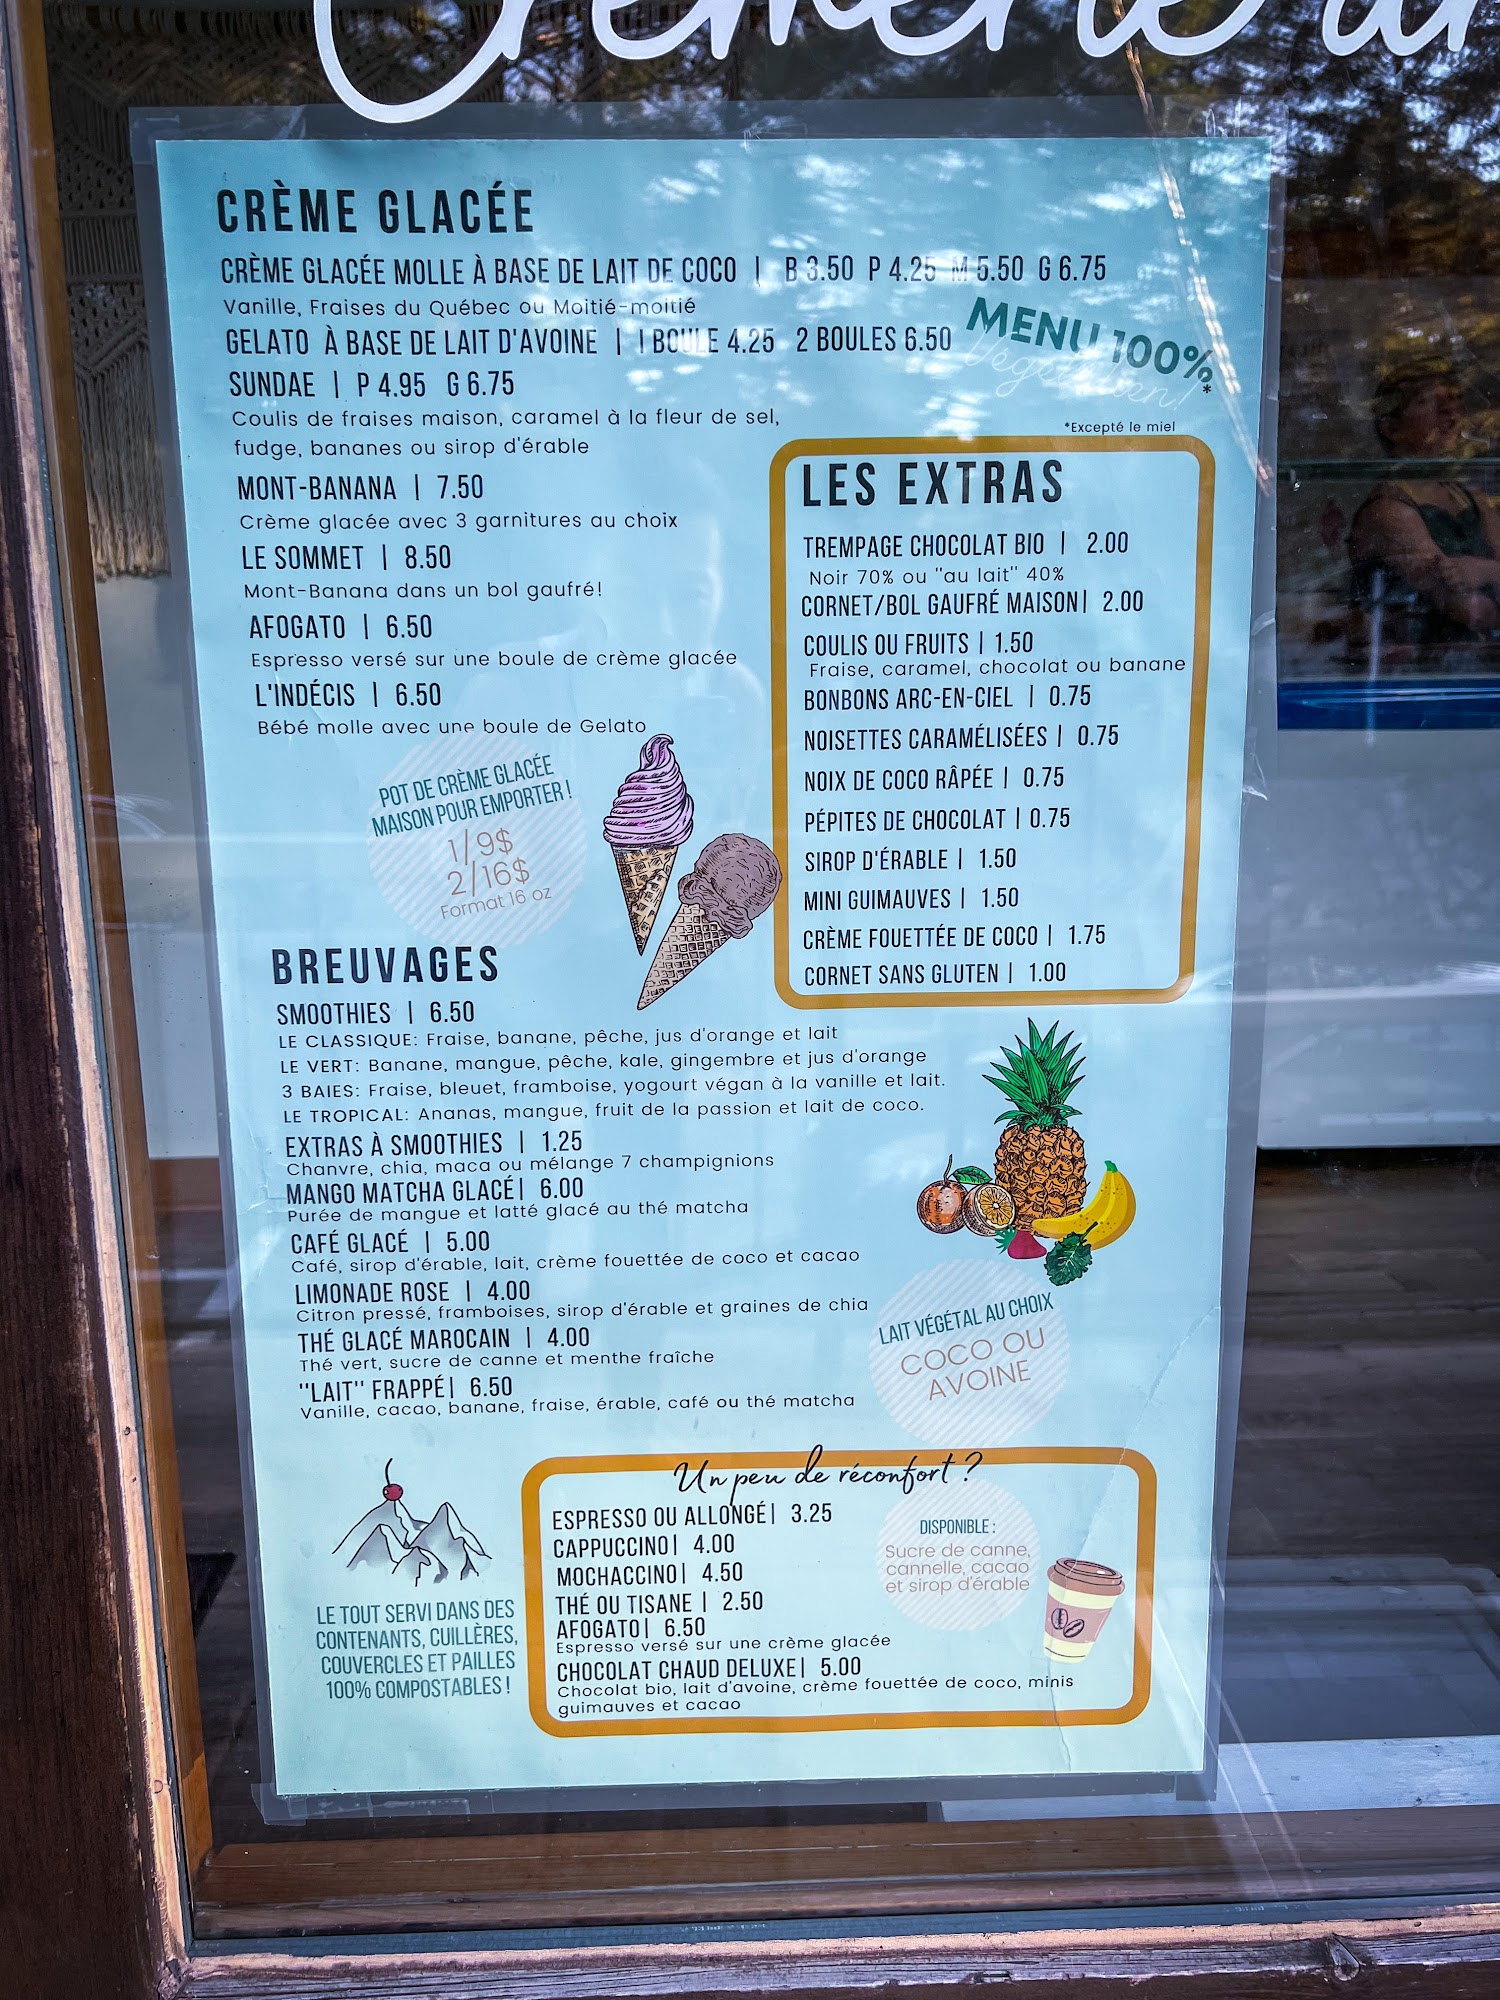 Crèmerie
CRÈME GLACÉE
CRÈME GLACÉE MOLLE À BASE DE LAIT DE COCO | B 3.50 P 4.25 M 5.50 G 6.75
Vanille, Fraises du Québec ou Moitié-moitié
GELATO À BASE DE LAIT D'AVOINE | 1 BOULE 4.25 2 BOULES 6.50
SUNDAE | P 4.95 G 6.75
Coulis de fraises maison, caramel à la fleur de sel,
fudge, bananes ou sirop d'érable
MONT-BANANA | 7.50
Crème glacée avec 3 garnitures au choix
LE SOMMET | 8.50
Mont-Banana dans un bol gaufré!
AFOGATO | 6.50
Espresso versé sur une boule de crème glacée
L'INDÉCIS | 6.50
Bébé molle avec une boule de Gelato
MENU 100%
Végétalien!*
*Excepté le miel
LES EXTRAS
TREMPAGE CHOCOLAT BIO | 2.00
Noir 70% ou "au lait" 40%
CORNET/BOL GAUFRÉ MAISON| 2.00
COULIS OU FRUITS | 1.50
Fraise, caramel, chocolat ou banane
BONBONS ARC-EN-CIEL | 0.75
NOISETTES CARAMÉLISÉES | 0.75
NOIX DE COCO RÂPÉE | 0.75
PÉPITES DE CHOCOLAT | 0.75
SIROP D'ÉRABLE | 1.50
MINI GUIMAUVES | 1.50
CRÈME FOUETTÉE DE COCO | 1.75
CORNET SANS GLUTEN | 1.00
POT DE CRÈME GLACÉE
MAISON POUR EMPORTER !
1/9$
2/16$
Format 16 oz
BREUVAGES
SMOOTHIES | 6.50
LE CLASSIQUE: Fraise, banane, pêche, jus d'orange et lait
LE VERT: Banane, mangue, pêche, kale, gingembre et jus d'orange
3 BAIES: Fraise, bleuet, framboise, yogourt végan à la vanille et lait.
LE TROPICAL: Ananas, mangue, fruit de la passion et lait de coco.
EXTRAS À SMOOTHIES | 1.25
Chanvre, chia, maca ou mélange 7 champignions
MANGO MATCHA GLACÉ| 6.00
Purée de mangue et latté glacé au thé matcha
CAFÉ GLACÉ | 5.00
Café, sirop d'érable, lait, crème fouettée de coco et cacao
LIMONADE ROSE | 4.00
Citron pressé, framboises, sirop d'érable et graines de chia
THÉ GLACÉ MAROCAIN | 4.00
Thé vert, sucre de canne et menthe fraîche
"LAIT" FRAPPÉ| 6.50
Vanille, cacao, banane, fraise, érable, café ou thé matcha
LAIT VÉGÉTAL AU CHOIX
COCO OU
AVOINE
LE TOUT SERVI DANS DES
CONTENANTS, CUILLÈRES,
COUVERCLES ET PAILLES
100% COMPOSTABLES !
Un peu de réconfort ?
ESPRESSO OU ALLONGÉ| 3.25
CAPPUCCINO| 4.00
MOCHACCINO| 4.50
THÉ OU TISANE | 2.50
AFOGATO| 6.50
Espresso versé sur une crème glacée
CHOCOLAT CHAUD DELUXE| 5.00
Chocolat bio, lait d'avoine, crème fouettée de coco, minis
guimauves et cacao
DISPONIBLE :
Sucre de canne,
cannelle, cacao
et sirop d'érable